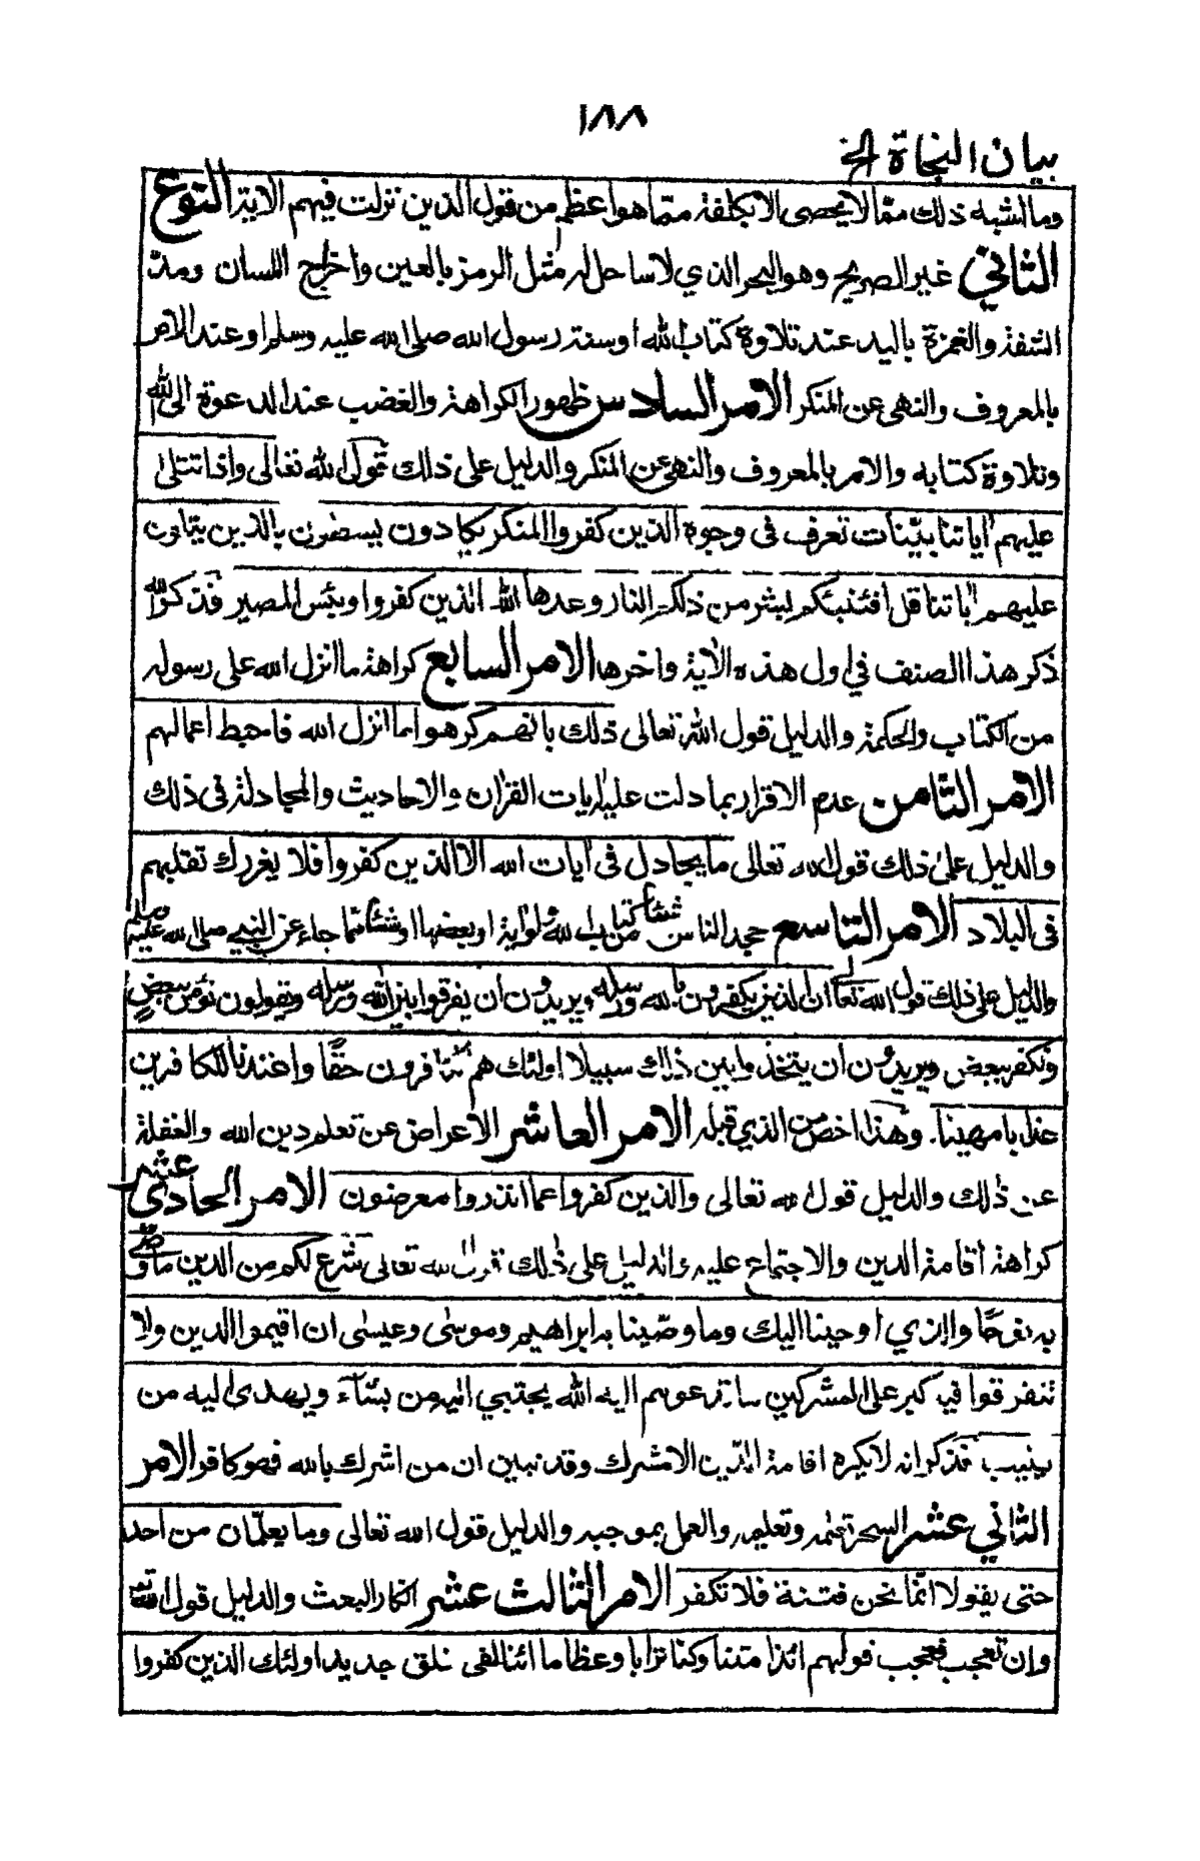 ١٨٨
بيان النجاة الخ
وما اشبه ذلك ممّا لا يحصى الا بكلفة ممّا هو اعظم من قول الذين نزلت فيهم الاية النوع
الثاني غير الصريح وهو البحر الذي لا ساحل له مثل الرمز بالعين واخراج اللسان ومدّ
الشفة والغمزة باليد عند تلاوة كتاب الله او سنة رسول الله صلى الله عليه وسلم او عند الامر
بالمعروف والنهى عن المنكر الامر السادس ظهور الكراهة والغضب عند الدعوة الى الله
وتلاوة كتابه والامر بالمعروف والنهى عن المنكر والدليل على ذلك قول الله تعالى واذا تتلى
عليهم اياتنا بيّنات تعرف فى وجوه الذين كفروا المنكر يكادون يسطون بالذين يتلون
عليهم اياتنا قل افئنبئكم بشر من ذلكم النار وعدها الله الذين كفروا وبئس المصير فذكر الله
ذكر هذا الصنف في اول هذه الأية واخرها الامر السابع كراهة ما انزل الله على رسوله
من الكتاب والحكمة والدليل قول الله تعالى ذلك بانهم كرهوا ما انزل الله فاحبط اعمالهم
الامر الثامن عدم الاقرار بما دلت عليه ايات القران والاحاديث والمجادلة فى ذلك
والدليل على ذلك قول الله تعالى ما يجادل فى ايات الله الا الذين كفروا فلا يغررك تقلبهم
فى البلاد الامر التاسع جحد الناس شيئا من كتاب الله ولو اية او بعضها او شيئا مما جاء عن النبي صلى الله عليه وسلم
والدليل على ذلك قول الله تعالى ان الذين يكفرون بالله ورسله ويريدون أن يفرقوا بين الله ورسله ويقولون نؤمن ببعض
ونكفر ببعض ويريدون ان يتخذوا بين ذلك سبيلا اولئك هم الكافرون حقًا واعتدنا للكافرين
عذابا مهينا. وهذا اخص من الذي قبله الامر العاشر الأعراض عن تعلم دين الله والغفلة
عن ذلك والدليل قول الله تعالى والذين كفروا عما انذروا معرضون الامر الحادى عشر
كراهة أقامة الدين والاجتماع عليه والدليل على ذلك قول الله تعالى شرع لكم من الدين ما وصّى
به نوحًا والذي أوحينا اليك وما وصّينا به ابراهيم وموسى وعيسى ان اقيموا الدين ولا
تتفرقوا فيه كبر على المشركين ما تدعوهم اليه الله يجتبي اليه من يشآء ويهدى اليه من
ينيب فذكر انه لا يكره اقامة الدّين الا مشرك وقد تبين ان من اشرك بالله فهو كافر الامر
الثاني عشر السحر تعلمه وتعليمه والعمل بموجبه والدليل قول الله تعالى وما يعلّمان من احد
حتى يقولا انّما نحن فتنة فلا تكفر الامر الثالث عشر انكار البعث والدليل قول الله تعالى
وإن تعجب فعجب قولهم ائذا متنا وكنا ترابا وعظاما ائنا لفى خلق جديد اولئك الذين كفروا